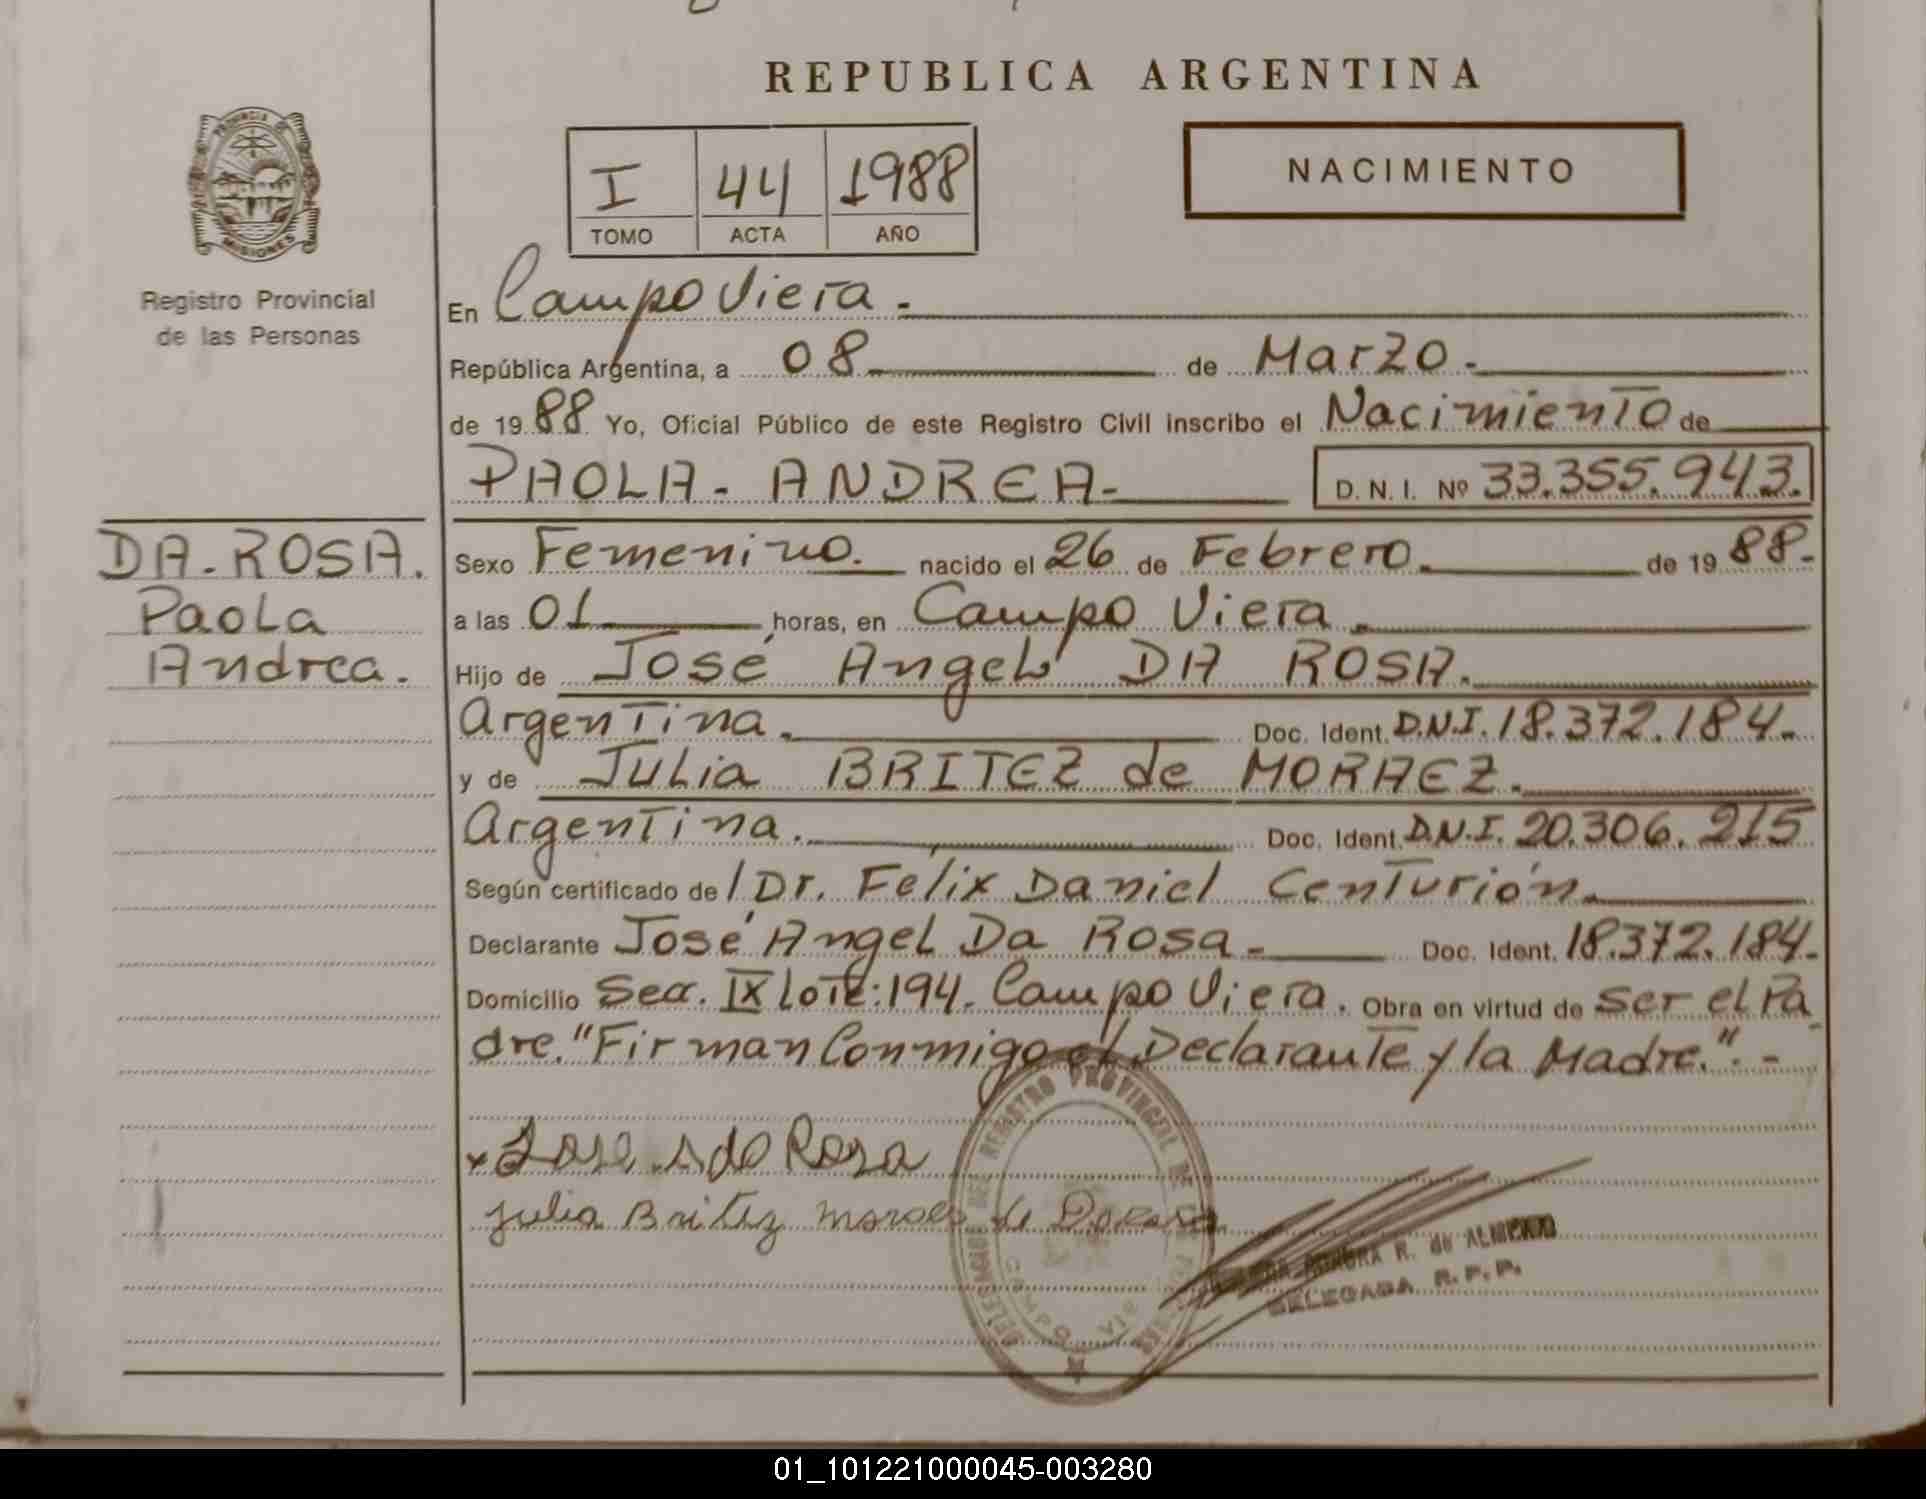 REPUBLICA ARGENTINA
PROVINCIA DE
MISIONES
Registro Provincial
de las Personas
I 44 1988
TOMO ACTA AÑO
NACIMIENTO
En Campo Viera.
República Argentina, a 08 de Marzo.
de 1988 Yo, Oficial Público de este Registro Civil inscribo el Nacimiento de
PAOLA - ANDREA - D. N. I. Nº 33.355.943.
DA - ROSA.
Paola
Andrea.
Sexo Femenino. nacido el 26 de Febrero. de 1988.-
a las 01 horas, en Campo Viera.
Hijo de José Angel DA ROSA.
Argentina. Doc. Ident. D.N.I. 18.372.184.-
y de Julia BRITEZ de MORAEZ.
Argentina. Doc. Ident. D.N.I. 20.306.215
Según certificado de / Dr. Felix Daniel Centurión.
Declarante José Angel Da Rosa - Doc. Ident. 18.372.184.-
Domicilio Secc. IX Lote: 194. Campo Viera. Obra en virtud de ser el Pa
dre. "Firman Conmigo el Declarante y la Madre.". -
x Jose A do Rosa
Julia Britez moraes de
REGISTRO PROVINCIAL DE
CAMPO VIE
R. de ALMEIDA
DELEGADA R.P.P.
01_101221000045-003280